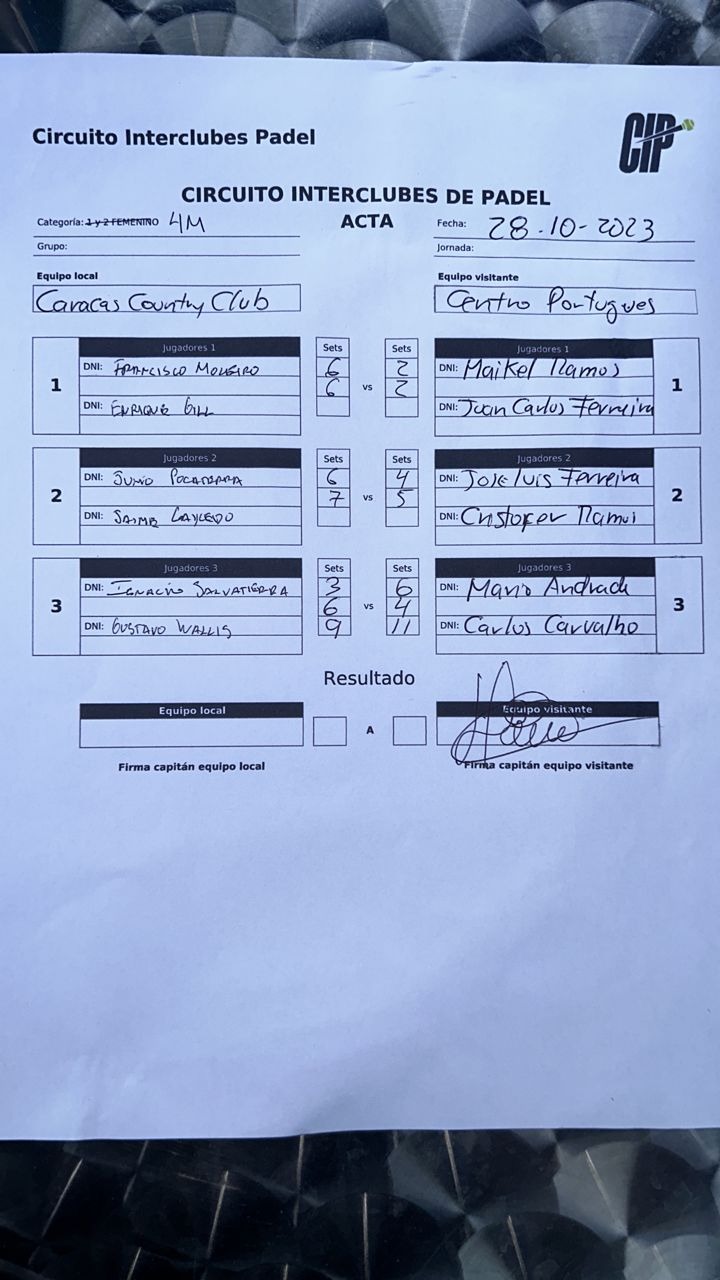 Circuito Interclubes Padel
CIP
CIRCUITO INTERCLUBES DE PADEL
Categoría: 1 y 2 FEMENINO 4M
ACTA
Fecha: 28-10-2023
Grupo:
Jornada:
Equipo local
Equipo visitante
Caracas Country Club
Centro Portugues
Jugadores 1 Sets Sets Jugadores 1
1 DNI: FRANCISCO MOLEIRO 6 2 DNI: Maikel Ramos 1
6 vs 2
DNI: ENRIQUE GILL DNI: Juan Carlos Ferreira
Jugadores 2 Sets Sets Jugadores 2
2 DNI: JUNIO POCATERRA 6 4 DNI: Jose Luis Ferreira 2
7 vs 5
DNI: JAIME CAYCEDO DNI: Cristofer Ramos
Jugadores 3 Sets Sets Jugadores 3
3 DNI: IGNACIO SALVATIERRA 3 6 DNI: Mario Andrade 3
6 vs 4
DNI: GUSTAVO WALLIS 9 11 DNI: Carlos Carvalho
Resultado
Equipo local A Equipo visitante
Firma capitán equipo local
Firma capitán equipo visitante